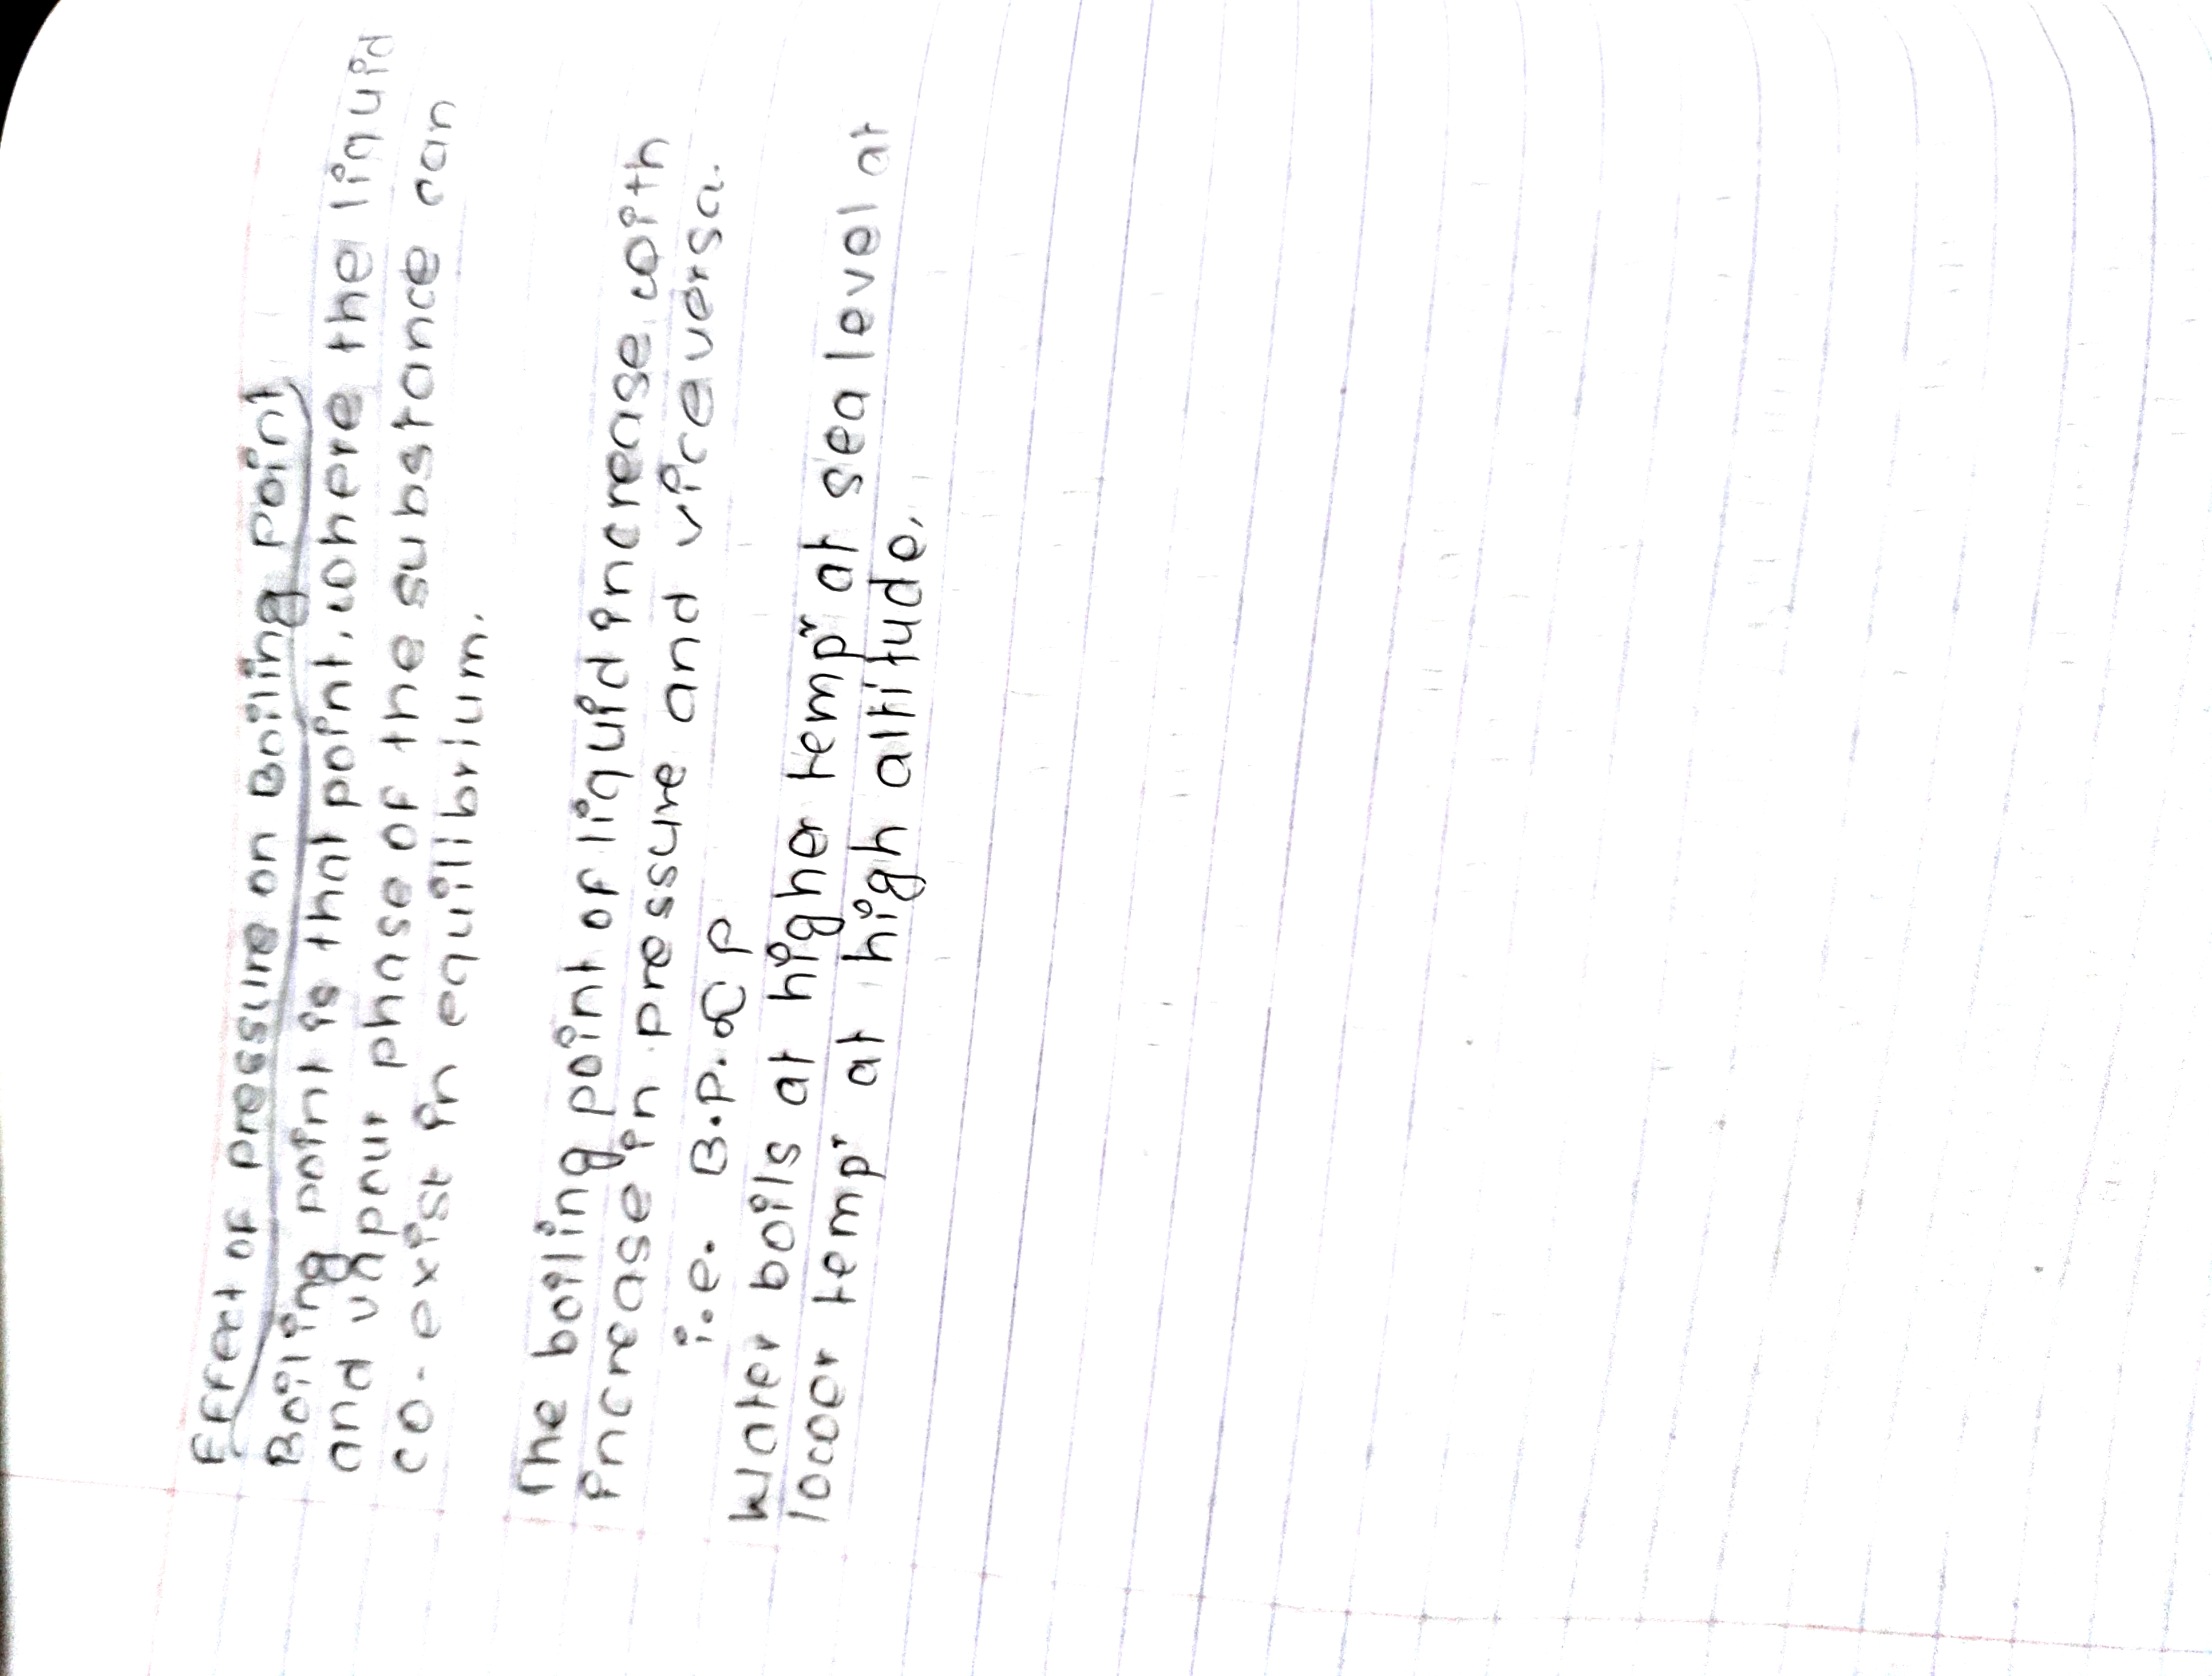 Effect of pressure on Boiling point
Boiling point is that point, where the liquid
and vapour phase of the substance can
co-exist in equilibrium.
The boiling point of liquid increase with
increase in pressure and viceversa.
i.e. B.P. ∝ P
Water boils at higher tempr at sea level at
lower tempr at high altitude.